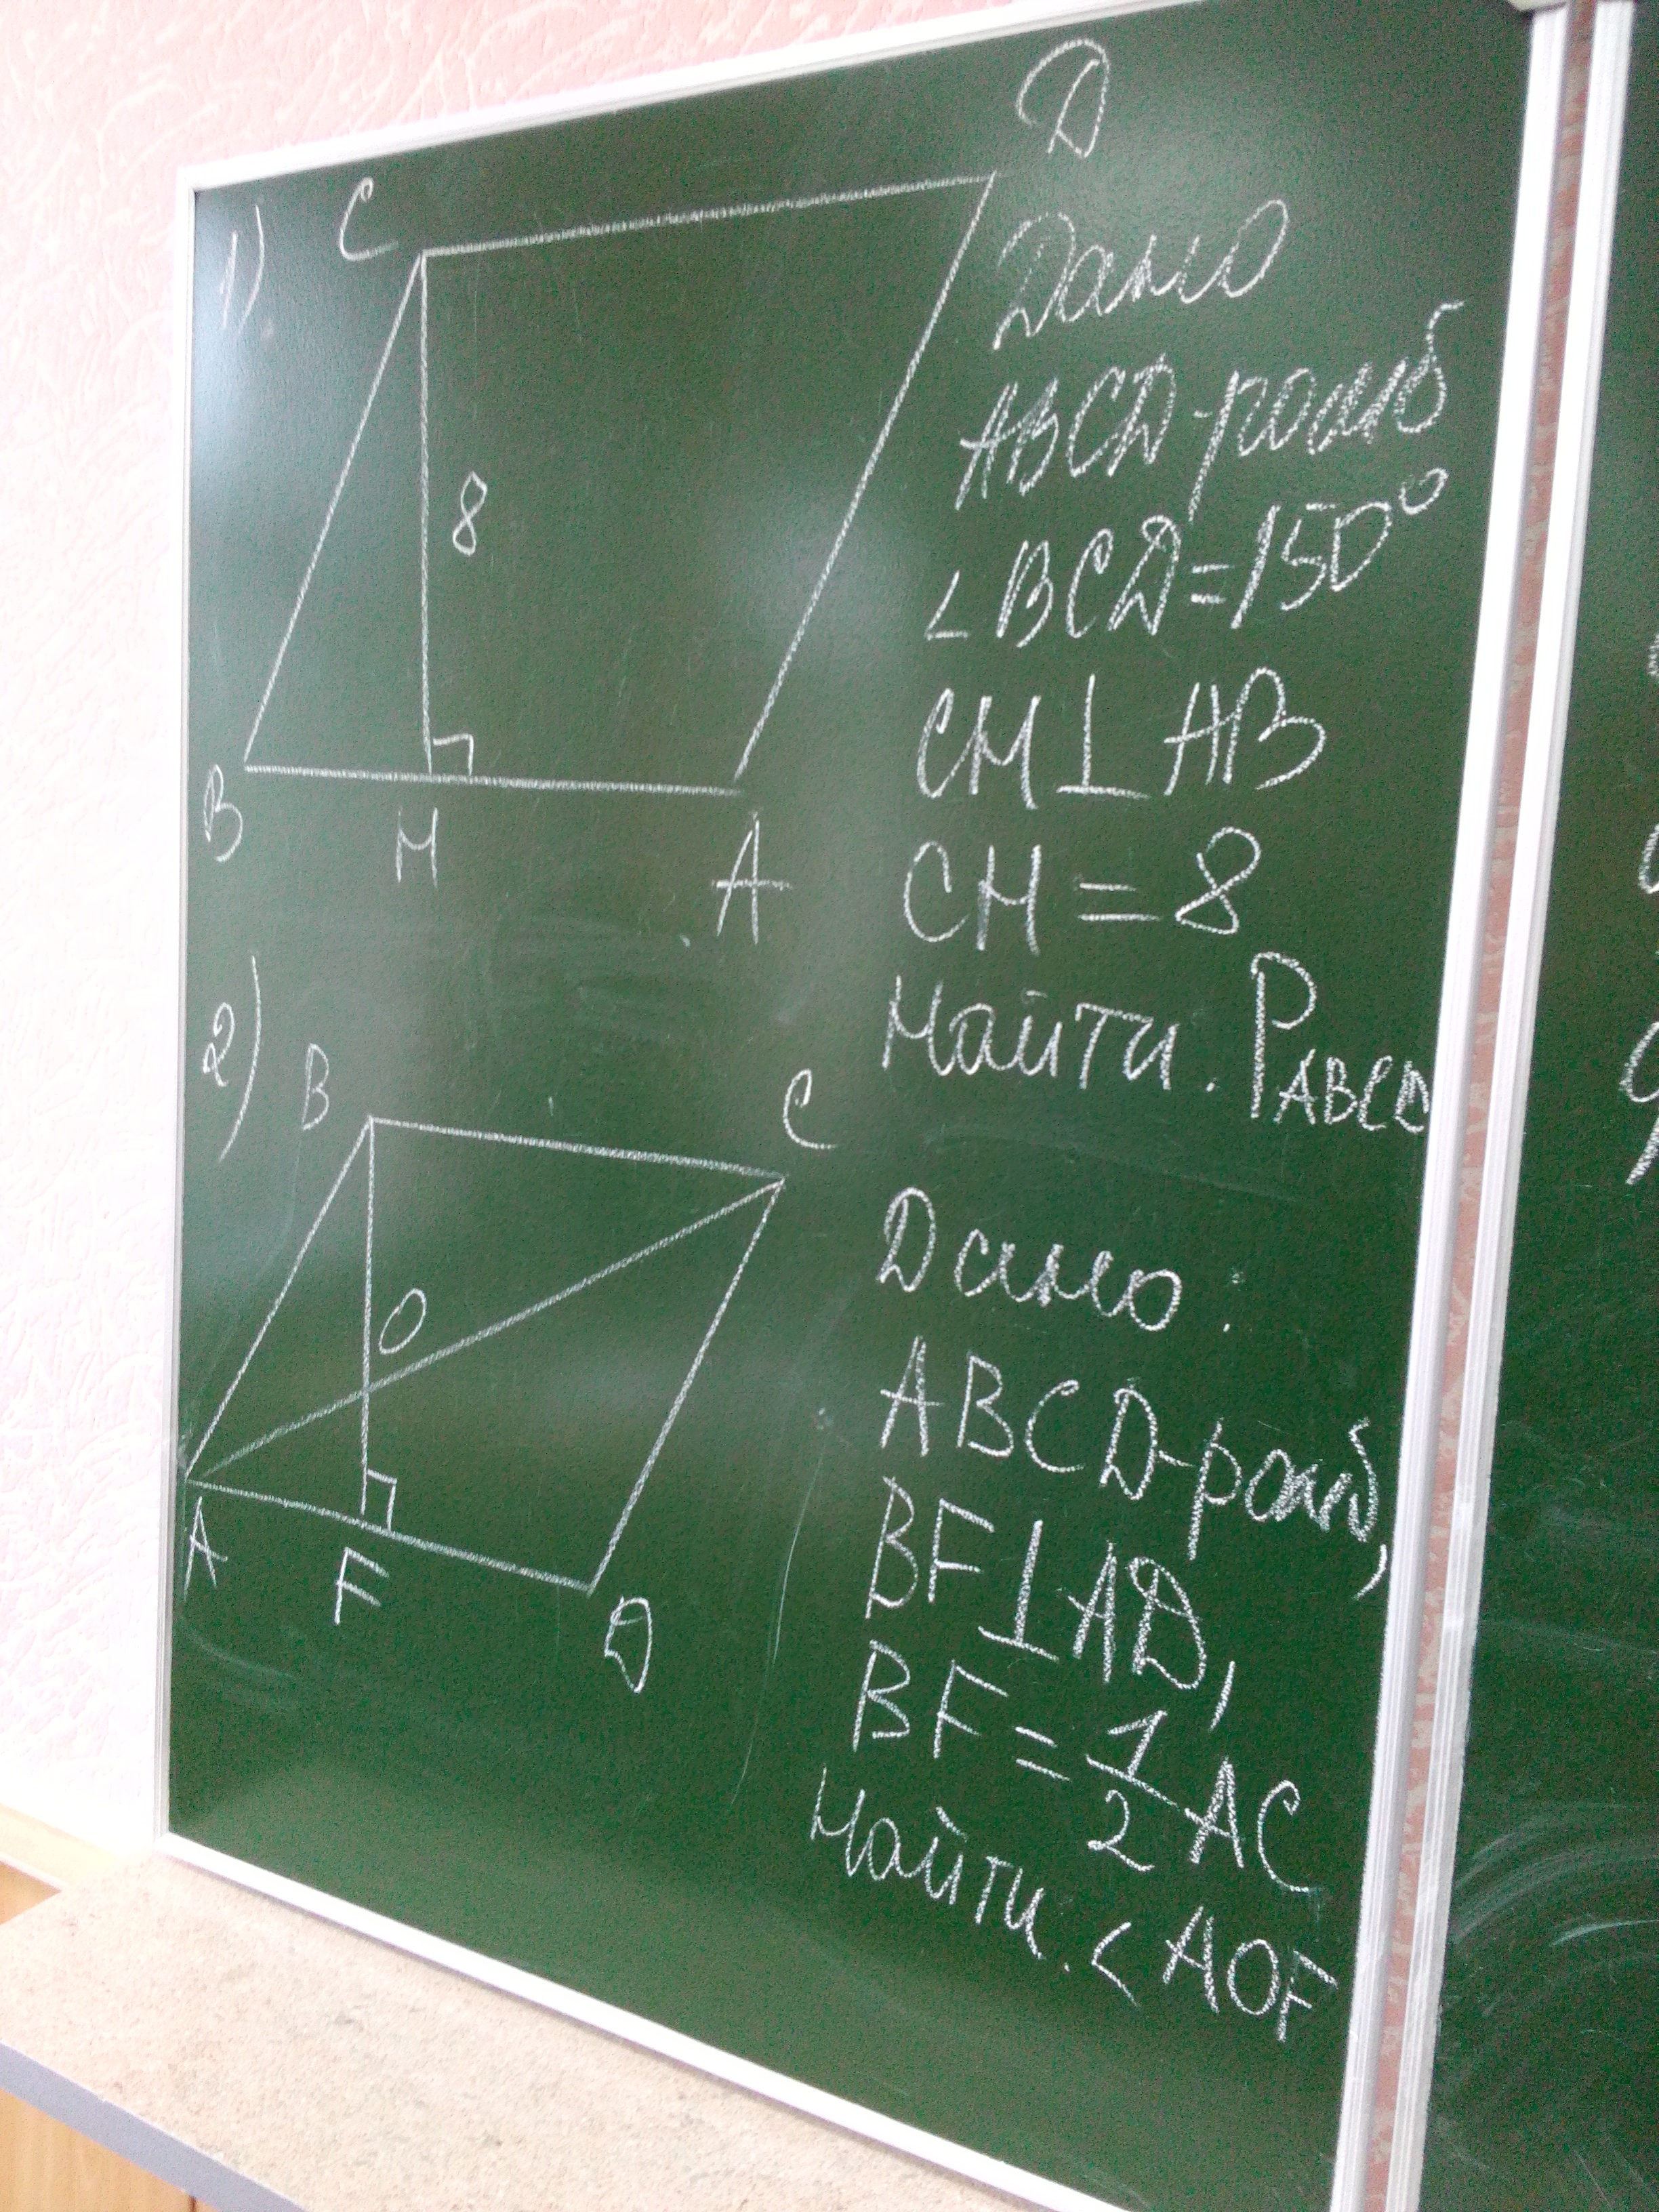 1)
C
D
8
B
H
A
Дано
ABCD-ромб
∠BCD=150°
CH⊥AB
CH=8
Найти. P_ABCD
2)
B
C
O
A
F
D
Дано:
ABCD-ромб,
BF⊥AD,
BF=1/2 AC
Найти. ∠AOF